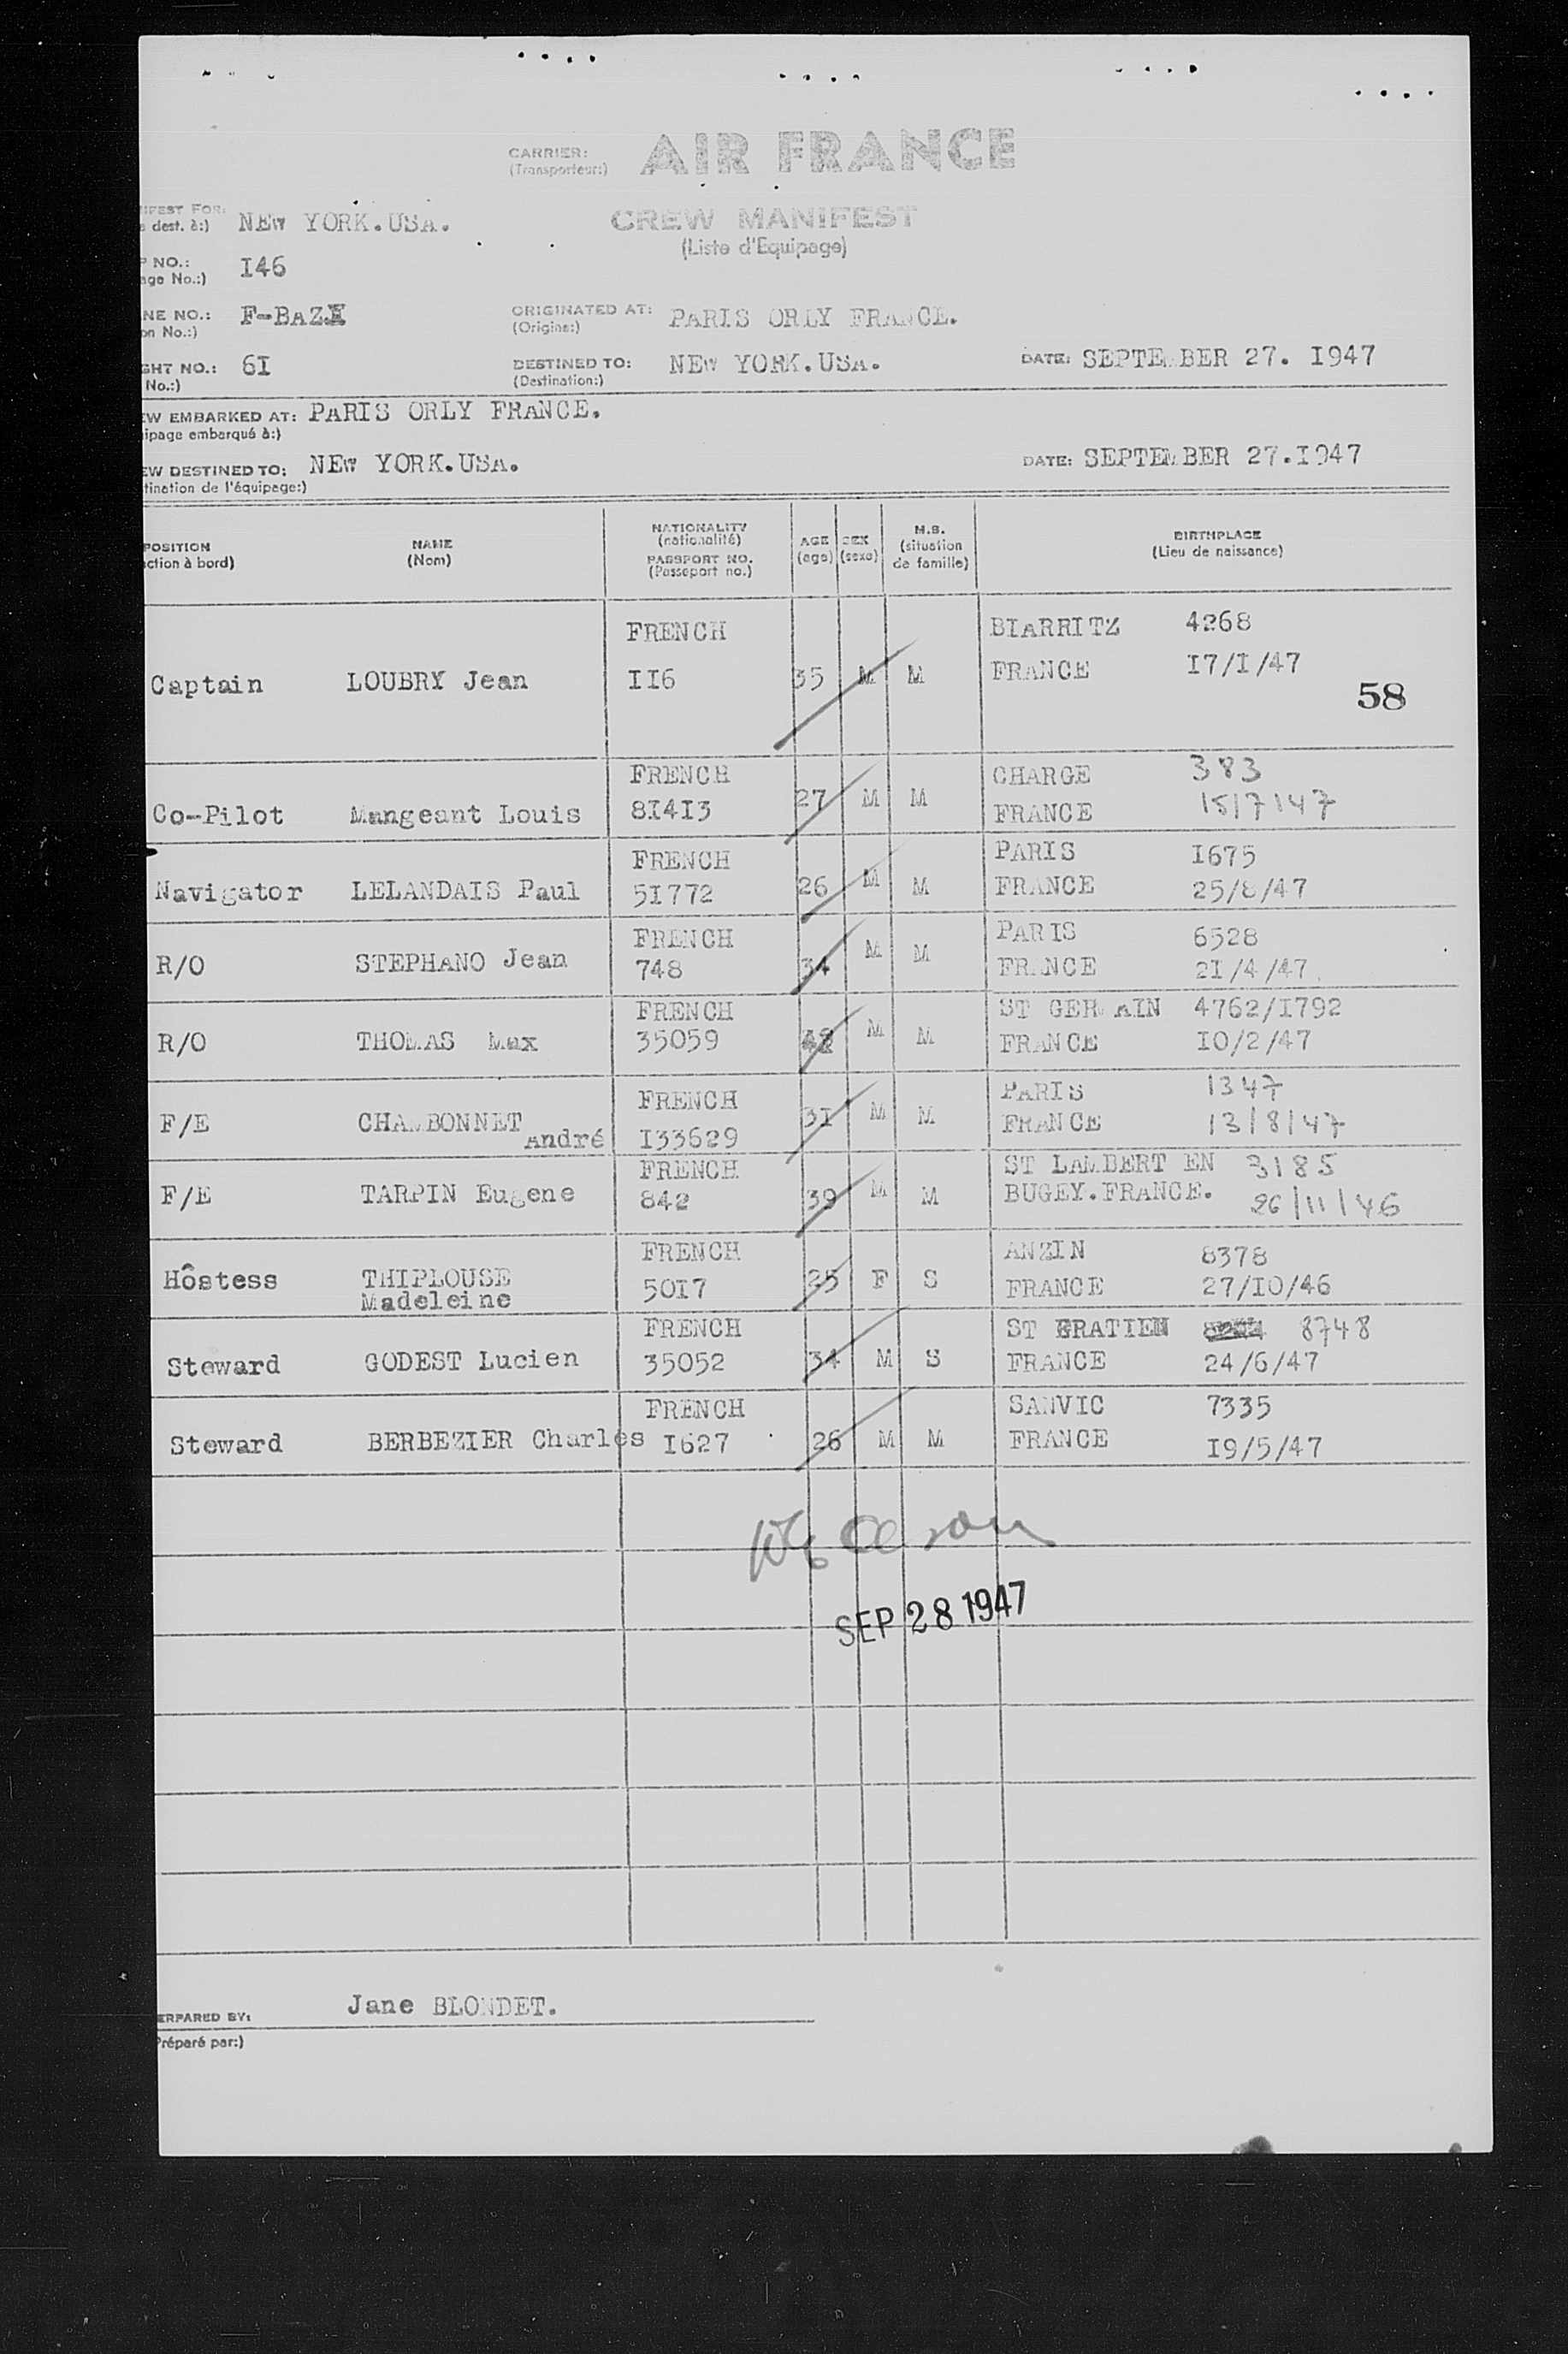 CARRIER: AIR FRANCE
(Transporteur:)
IFEST FOR: NEW YORK.USA. CREW MANIFEST
dest. à:) (Liste d'Equipage)
NO.: I46
age No.:)
NE NO.: ORIGINATED AT: PARIS ORLY FRANCE.
on No.:) (Origine:)
GHT NO.: 6I DESTINED TO: NEW YORK.USA. DATE: SEPTEMBER 27. I947
No.:) (Destination:)
EW EMBARKED AT: PARIS ORLY FRANCE.
ipage embarqué à:)
EW DESTINED TO: NEW YORK.USA. DATE: SEPTEMBER 27.I947
tination de l'équipage:)
POSITION NAME NATIONALITY AGE SEX M.S. BIRTHPLACE
ction à bord) (Nom) (nationalité) (age) (sexe) (situation de famille) (Lieu de naissance)
PASSPORT NO.
(Passeport no.)
FRENCH BIARRITZ 4268
Captain LOUBRY Jean II6 35 M M FRANCE I7/I/47
58
FRENCH CHARGE 383
Co-Pilot Mangeant Louis 8I4I3 27 M M FRANCE 15/7/47
FRENCH PARIS I675
Navigator LELANDAIS Paul 5I772 26 M M FRANCE 25/8/47
FRENCH PARIS 6528
R/O STEPHANO Jean 748 34 M M FRANCE 2I/4/47.
FRENCH ST GERMAIN 4762/I792
R/O THOMAS Max 35059 M M FRANCE I0/2/47
FRENCH PARIS 1347
F/E CHAMBONNET André I33629 3I M M FRANCE 13/8/47
FRENCH ST LAMBERT EN 3185
F/E TARPIN Eugene 842 39 M M BUGEY.FRANCE. 26/11/46
FRENCH ANZIN 8378
Hôstess THIPLOUSE 50I7 25 F S FRANCE 27/I0/46
Madeleine
FRENCH ST GRATIEN 8748
Steward GODEST Lucien 35052 34 M S FRANCE 24/6/47
FRENCH SANVIC 7335
Steward BERBEZIER Charles I627 26 M M FRANCE I9/5/47
SEP 28 1947
ERPARED BY: Jane BLONDET.
Préparé par:)